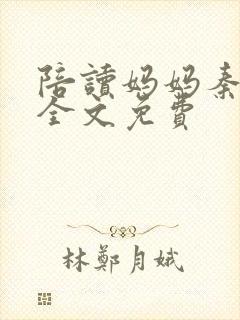 陪讀妈妈秦
全文免費
林鄭月娥